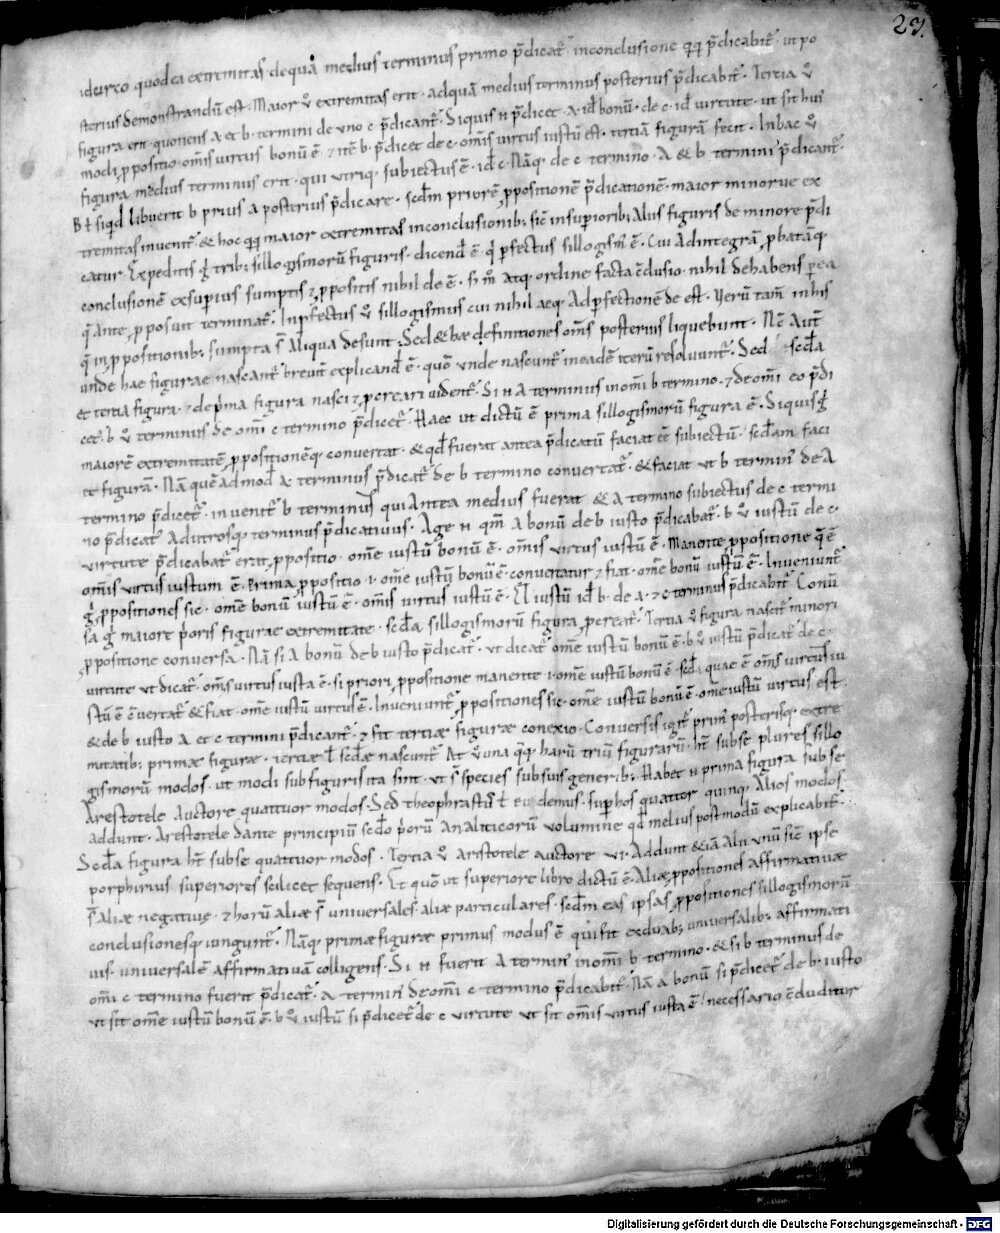 29.
idcirco quod ea extremitas · de qua medius terminus primo p̄dicat̄ in conclusione q̄q; p̄dicabit̄ · ut po
sterius demonstrandū est · Maior v̊ extremitas erit · ad quā medius terminus posterius p̄dicabit̄ · Tertia v̊
figura erit · quotiens a et b · termini de uno c · p̄dicant̄ · Si quis n̄ p̄dicet · a · id bonū · de c · id virtute · ut sit huius
modi p̄positio · om̄is virtus bonū ē · & itē b · p̄dicet de c · om̄is virtus iustū est · tertiā figurā fecit · In hac v̊
figura medius terminus erit · qui utriq; subiectus ē · id c · Nāq; de c termino · A & b termini p̄dicant̄ ·
Et siq̄d libuerit b prius a posterius p̄dicare · scdm̄ priorē p̄positionē p̄dicationē · maior minorue ex
tremitas invenit̄ · & hoc q̄q; maior extremitas in conclusionib; sic̄ in superiorib; Alus figuris de minore p̄di
catur · Expeditis g̊ trib; sillogismorū figuris · dicend̄ ē · q̊ p̄fectus sillogism̄ ē · Cui ad integrā p̄batāq;
conclusionē ex superius sumptis & p̄positis nihil de ē · si m̊ atq; ordine facta c̄clusio · nihil de habens p̄ ea
q̄ ante p̄posuit terminat̄ · Inp̄fectus v̊ sillogismus cui nihil aeq; Ad p̄fectionē de est · Verū tam̄ in his
q̄ in p̄positionib; sumpta s̄ aliqua desunt · Sed & hae definitiones om̄s posterius liquebunt · Nc̄ Aut̄
unde hae figurae nascant̄ brevit̄ explicand̄ ē · quō unde nascunt̄ in eadē iterū resolvunt̄ · Sed scd̄a
et tertia figura · & de p̄ma figura nasci & p̄creari vident̄ · Si n̄ a terminus in om̄i b termino · & de om̄i eo p̄di
cet̄ · b v̊ terminus de om̄i c termino p̄dicet̄ · Haec ut dictū ē prima sillogismorū figura ē · Si quis g̊
maiorē extremitatē p̄positionēq; convertat · & qd̄ fuerat antea p̄dicatū faciat eē subiectū · scd̄am faci
et figurā · Nā quē ad mod̄ a · terminus p̄dicat̄ de b termino convertat̄ · & faciat ut b termin̄ de A
termino p̄dicet̄ · invenit̄ b terminus qui Antea medius fuerat & A termino subiectus de c termi
no p̄dicat̄ Ad utrosq; terminus p̄dicativus · Age n̄ qm̄ A bonū de b iusto p̄dicabat̄ · b v̊ iustū de c ·
virtute p̄dicabat̄ erit p̄positio · om̄e iustū bonū ē · om̄is virtus iustū ē · Manente p̄positione q̄ ē
om̄is virtus iustum ē · prima p̄positio · i · om̄e iustū bonū ē · convertatur & fiat · om̄e bonū iustū ē · Inveniunt̄
g̊ p̄positiones sic · om̄e bonū iustū ē · om̄is virtus iustū ē · Et iustū id b · de a · & c terminus p̄dicabit̄ · Conū
sa g̊ maiore p̄oris figurae extremitate · scd̄a sillogismorū figura p̄creat̄ · Tertia v̊ figura nascit̄ minori
p̄positione conversa · Nā si A bonū de b iusto p̄dicat̄ · ut dicat̄ om̄e iustū bonū ē · b v̊ iustū p̄dicat̄ de c ·
virtute ut dicat̄ · om̄is virtus iusta ē · si priori p̄positione manente · i · om̄e iustū bonū ē · scd̄ quae ē om̄is virtus iu
stū ē c̄vertat̄ & fiat · om̄e iustū virtus ē · Inveniunt̄ p̄positiones sic · om̄e iustū bonū ē · om̄e iustū virtus est ·
& de b iusto A et c termini p̄dicant̄ · & fit tertiae figurae conexio · Conversis igit̄ prim̄ posterisq; extre
mitatib; primae figurae · tertiae ł scd̄ae nascunt̄ At v̊ una q̄q; harū triū figurarū · ht̄ sub se plures sillo
gismorū modos · ut modi sub figuris ita sint · ut s̄ species sub suis generib; Habet n̄ prima figura sub se
Arestotele Auctore quattuor modos · Sed theophrastus ł eudemus · sup̄ hos quattor quinq; Alios modos
addunt · Arestotele dante principiū scd̄o p̄orū Analiticorū volumine qd̄ melius postmodū explicabit̄ ·
Scd̄a figura ht̄ sub se quattuor modos · Tertia v̊ aristotele auctore VI · Addunt & iā alii unū sic̄ ipse
porphirius superiores scilicet sequens · Et quō ut superiore libro dictū ē · Aliae p̄positiones affirmativae
s̄ aliae negativę · & horū aliae s̄ universales aliae particulares · scdm̄ eas ipsas p̄positiones sillogismorū
conclusionesq; iungunt̄ · Nāq; primae figurae primus modus ē qui fit ex duab; universalib; affirmati
uis · universalē affirmativā colligens · Si n̄ fuerit A termin̄ in om̄i b termino · & si b terminus de
om̄i c termino fuerit p̄dicat̄ · a termin̄ de om̄i c termino p̄dicabit̄ · Nā a bonū si p̄dicet̄ de b · iusto
ut sit om̄e iustū bonū ē · b v̊ iustū si p̄dicet̄ de c virtute ut sit om̄is virtus iusta ē · necessario c̄cluditur
Digitalisierung gefördert durch die Deutsche Forschungsgemeinschaft - DFG